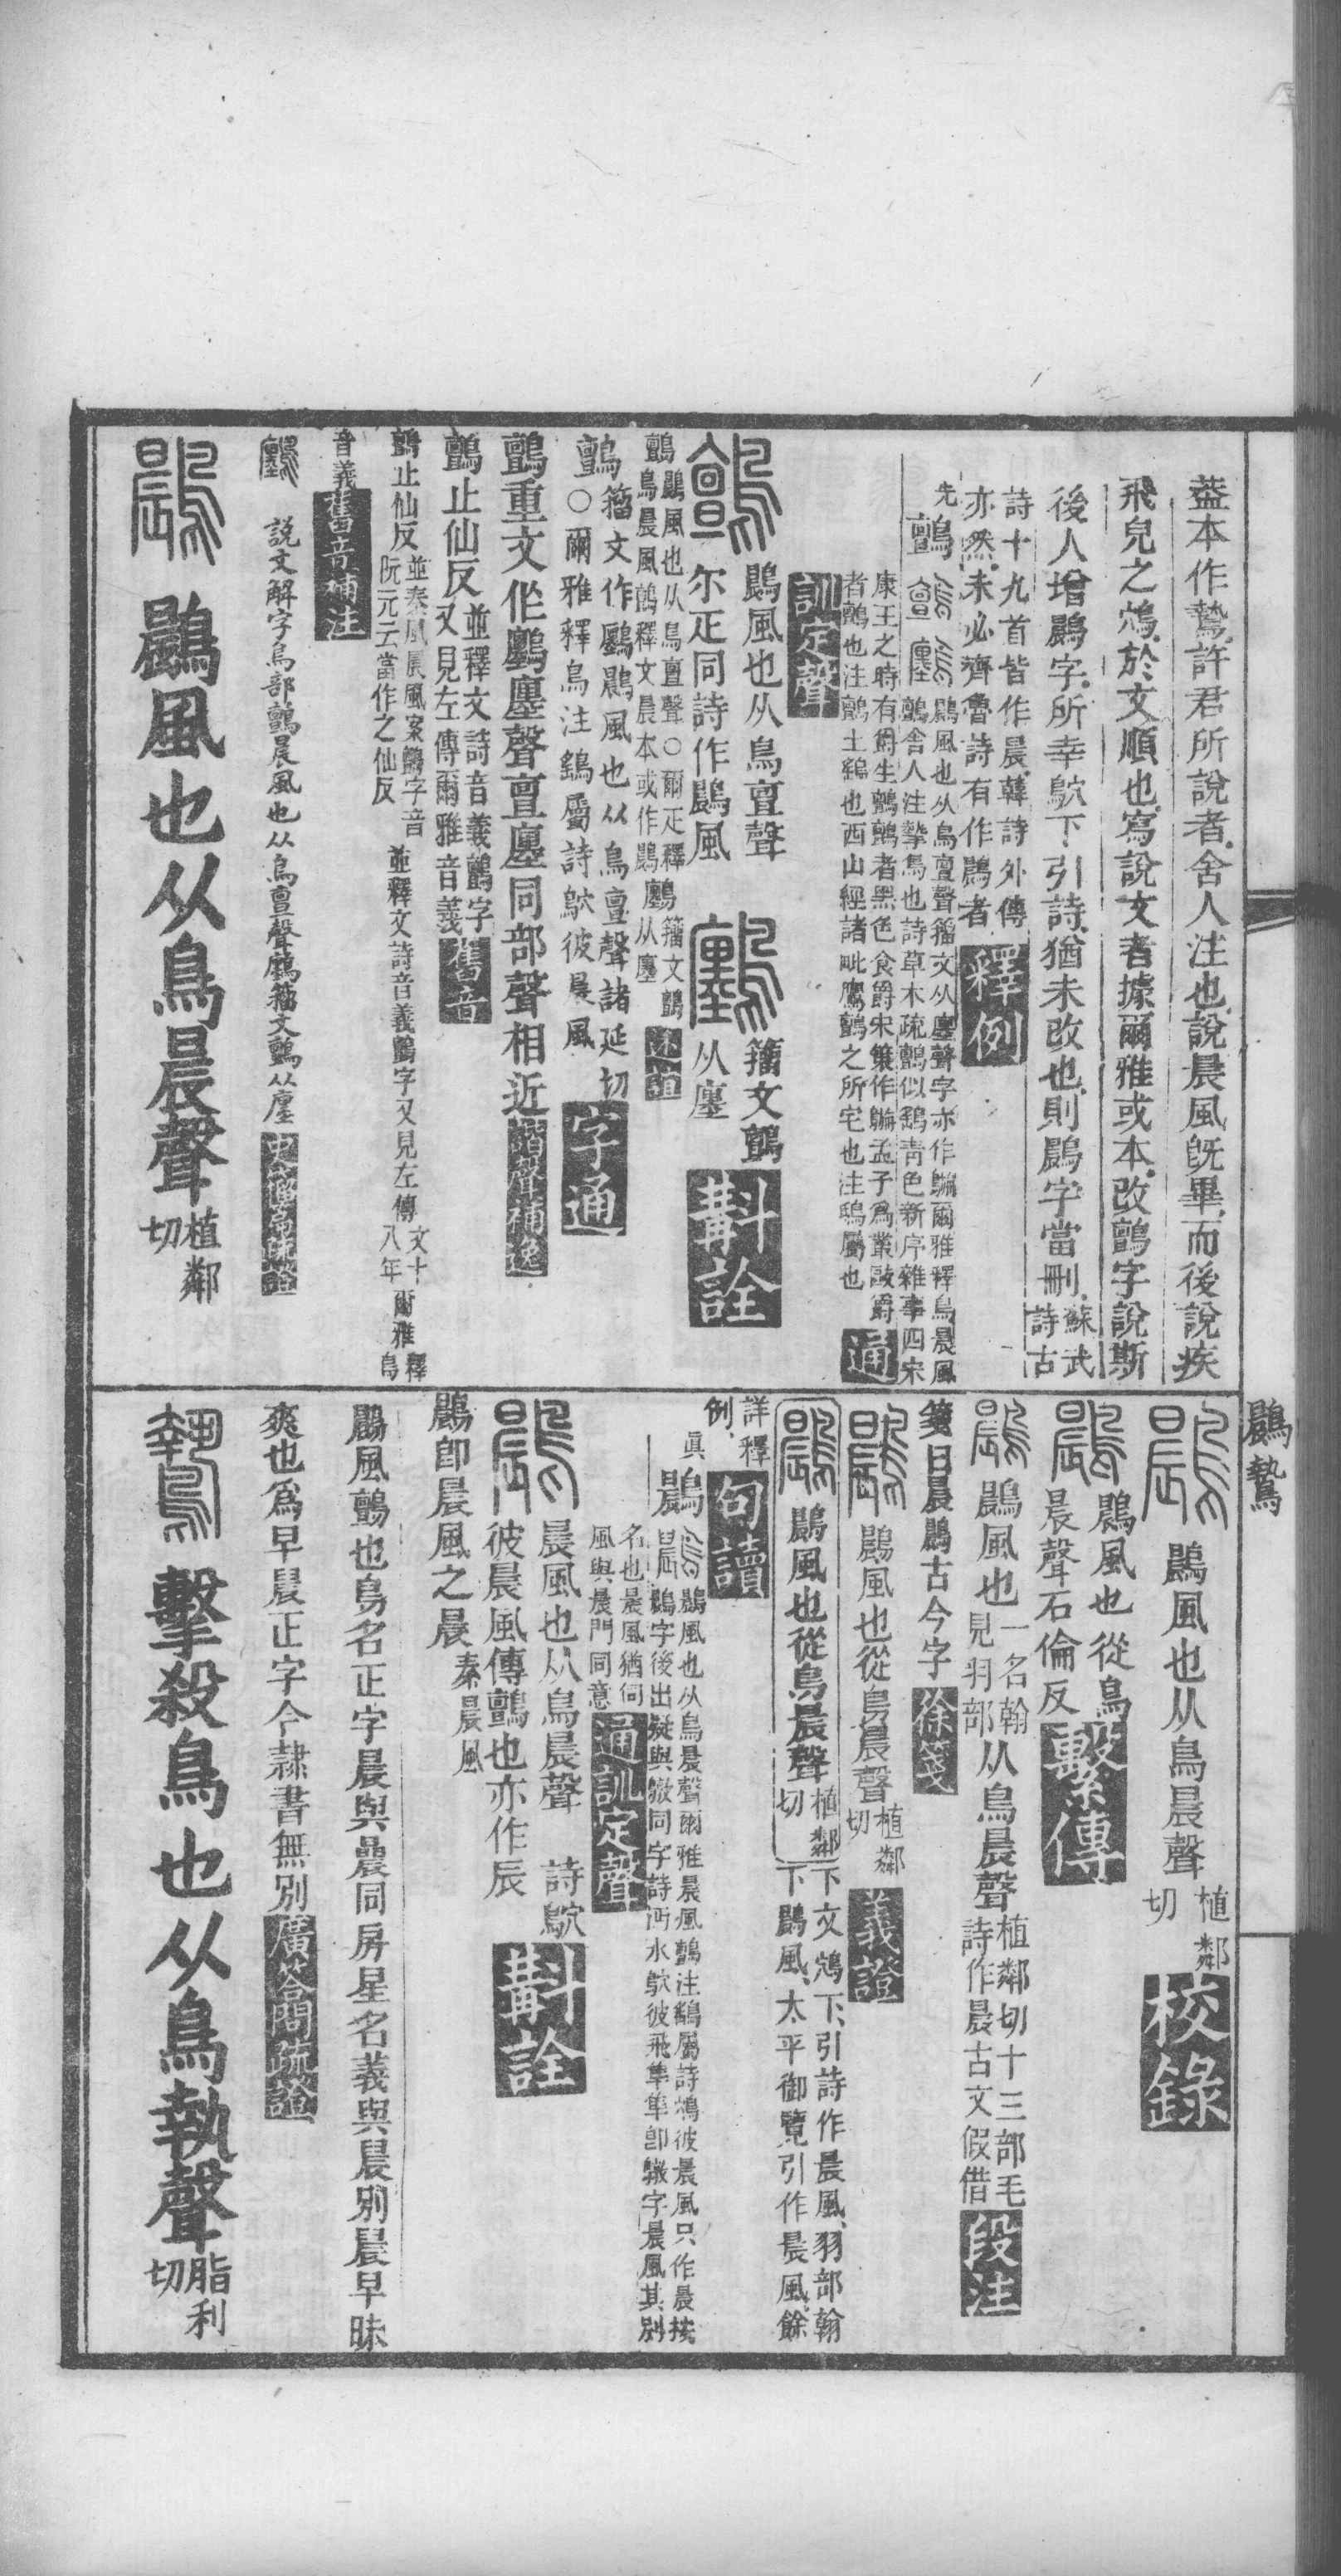 蓋本作鷙許君所說者舍人注也說晨風旣畢而後說疾
飛皃之鴥於文順也寫說文者據爾雅或本改鸇字說斯
後人增鷐字所幸鴥下引詩猶未改也則鷐字當刪蘇武
詩古
詩十九首皆作晨韓詩外傳
亦然未必齊魯詩有作鷐者釋例
先鸇
鷐風也从鳥亶聲籒文从廛聲字亦作鶣爾雅釋鳥晨風
鸇舍人注摯鳥也詩草木疏鸇似鷂靑色新序雜事四宋
康王之時有爵生鸇鸇者黑色食爵宋策作鶣孟子爲叢敺爵
者鸇也注鸇土鷂也西山經諸毗鷹鸇之所宅也注鴟屬也通
訓定聲
鷐風也从鳥亶聲
尔疋同詩作鷐風
籒文鸇
从廛
斠詮
鸇鷐風也从鳥亶聲○爾疋釋
鳥晨風鸇釋文晨本或作鷐
籒文鸇
从廛
述誼
鸇籒文作鷐鷐風也从鳥亶聲諸延切
○爾雅釋鳥注鷂屬詩鴥彼晨風字通
鸇重文作廛聲亶廛同部聲相近諧聲補逸
鸇止仙反並釋文詩音義鸇字
又見左傳爾雅音義舊音
鸇止仙反並秦風晨風案鸇字音
阮元云當作之仙反
並釋文詩音義鸇字又見左傳文十
八年爾雅釋
鳥
音義舊音補注
說文解字鳥部鸇晨風也从鳥亶聲籒文鸇从廛
鷐風也从鳥晨聲植鄰
切
鷐鷙
鷐風也从鳥晨聲植鄰
切校錄
鷐風也從鳥
晨聲石倫反繫傳
鷐風也一名翰
見羽部从鳥晨聲植鄰切十三部毛
詩作晨古文假借段注
箋曰晨鷐古今字徐箋
鷐風也從鳥晨聲植鄰
切義證
鷐風也從鳥晨聲植鄰
切下文鴥下引詩作晨風羽部翰
下鷐風太平御覽引作晨風餘
詳釋
例句讀
眞鷐
鷐風也从鳥晨聲爾雅晨風鸇注鷂屬詩鴥彼晨風只作晨按
鷐字後出疑與鷻同字詩沔水鴥彼飛隼隼卽鷻字晨風其別
名也晨風猶伺
風與晨門同意通訓定聲
晨風也从鳥晨聲詩鴥
彼晨風傳鸇也亦作辰斠詮
鷐卽晨風之晨秦晨風
鷐風鸇也鳥名正字晨與曟同房星名義與晨別晨早昧
爽也爲早晨正字今隸書無別廣答問疏證
擊殺鳥也从鳥執聲脂利
切